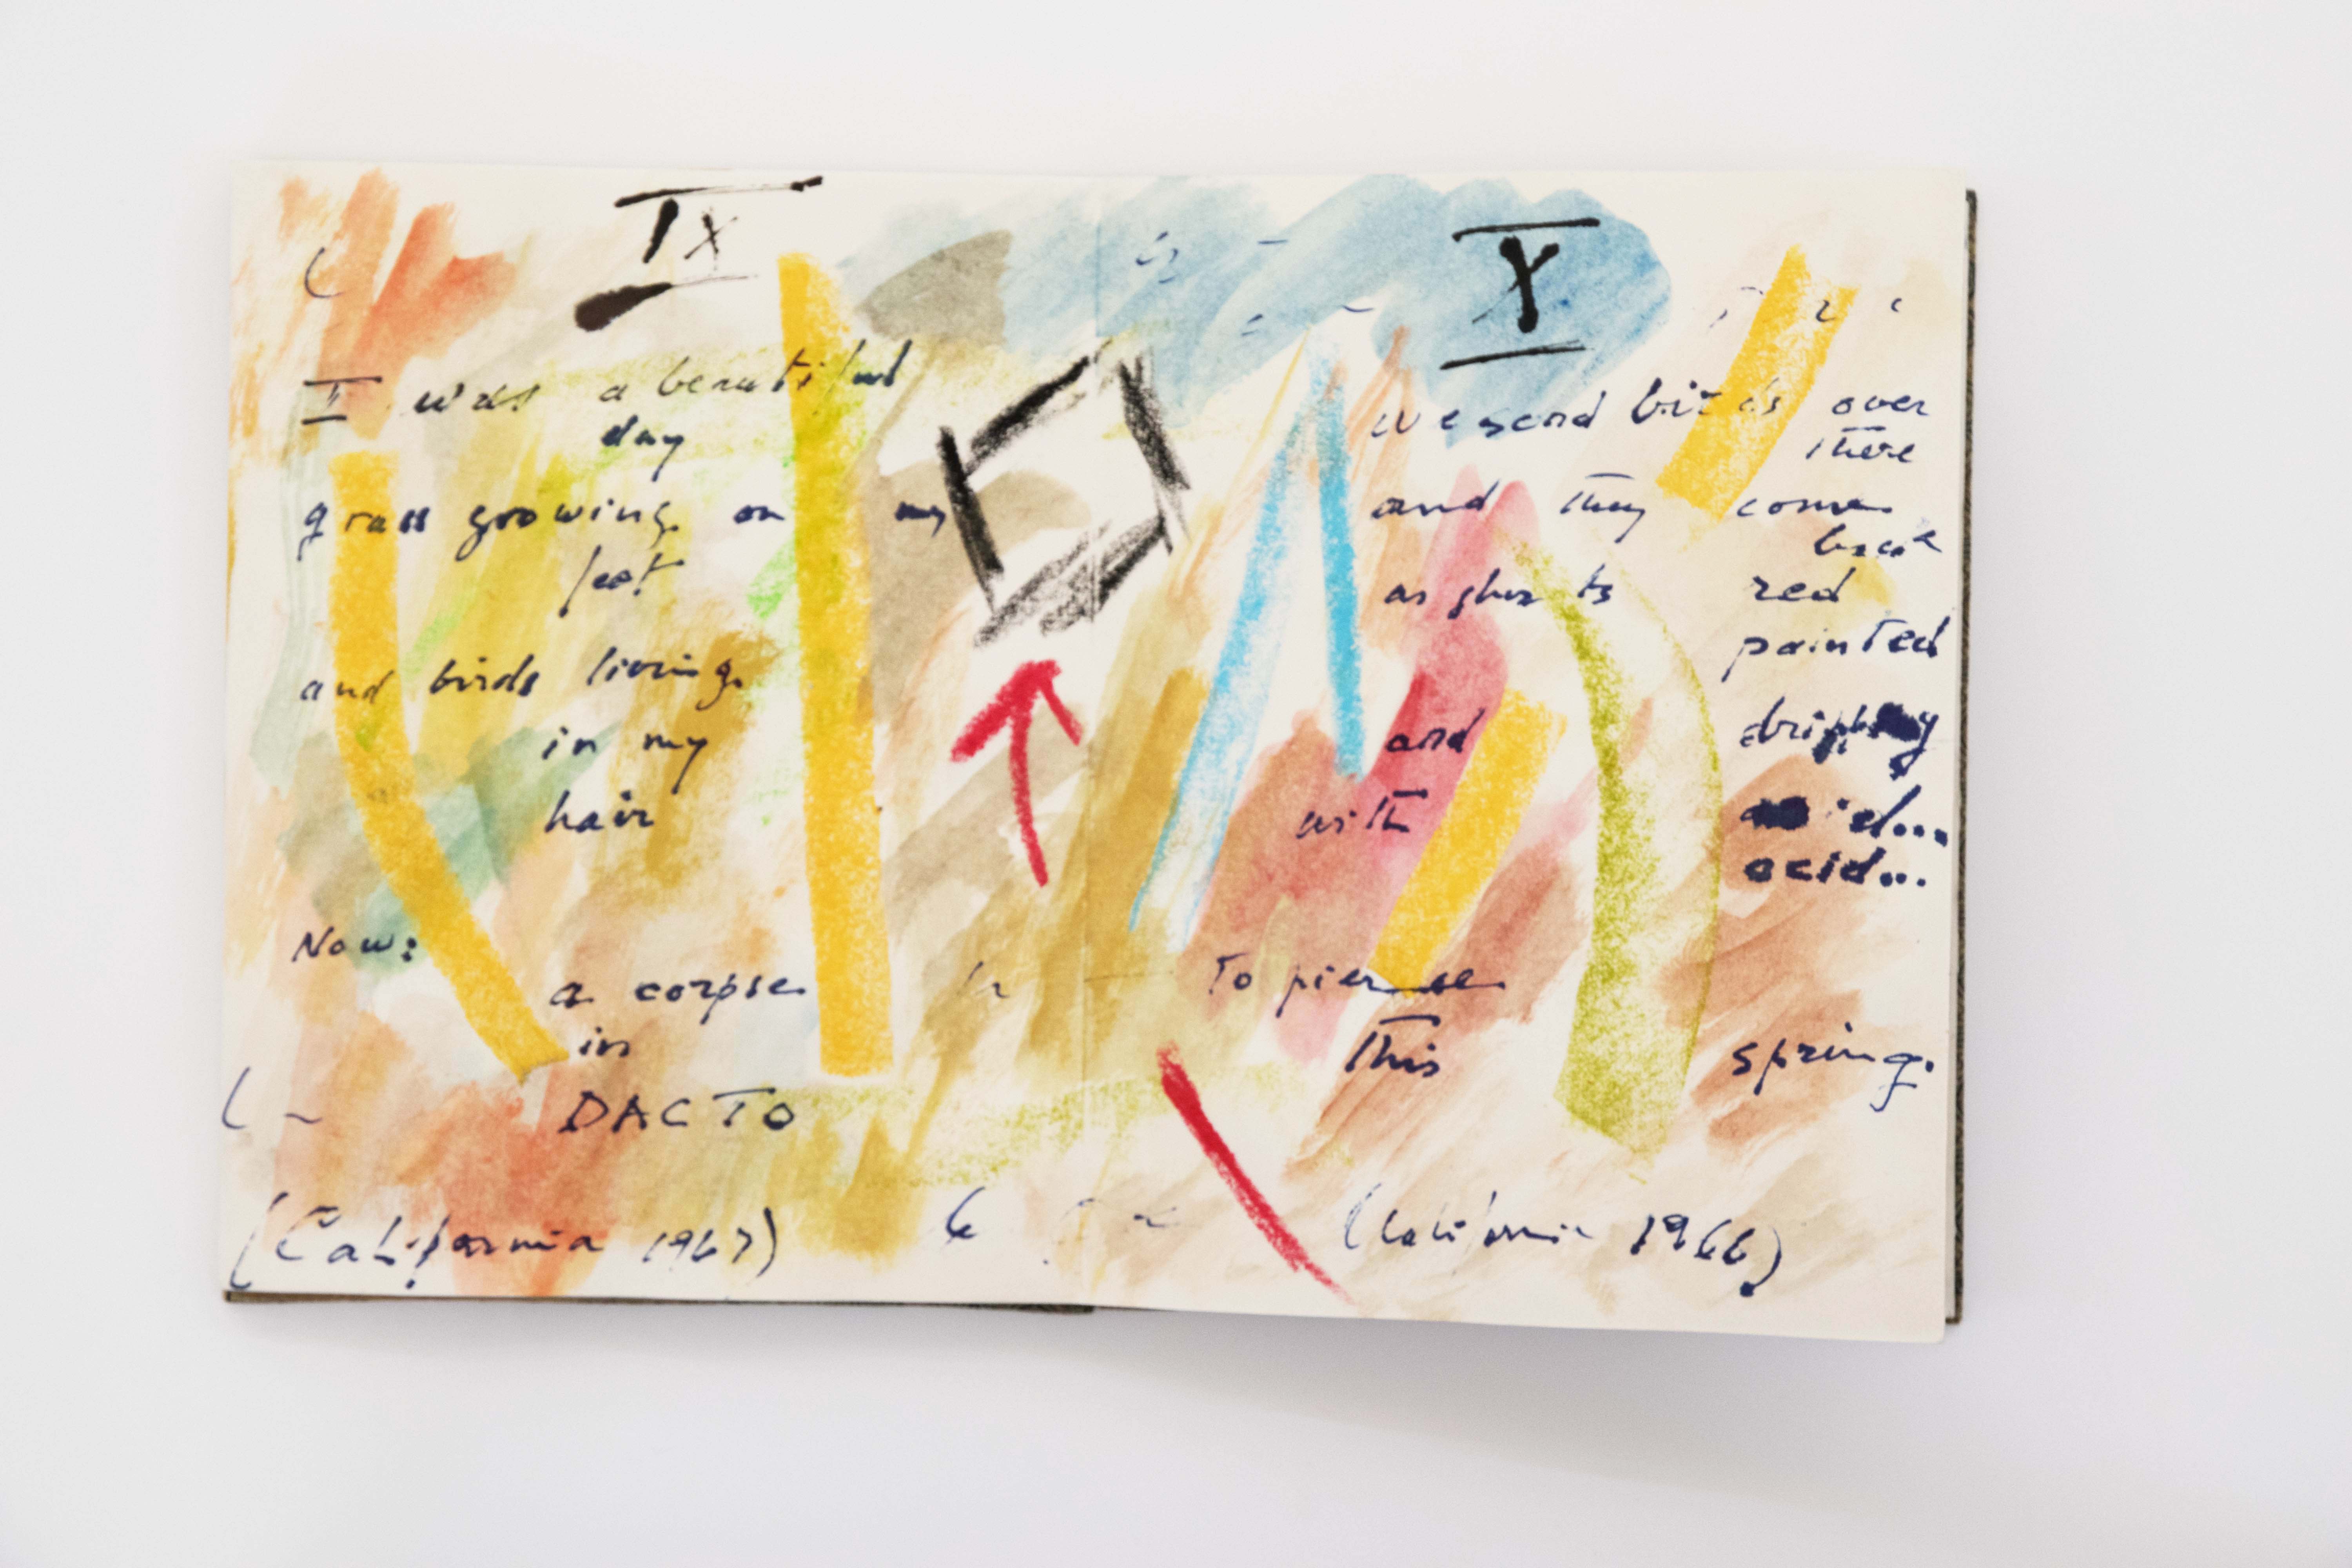 IX
I was a beautiful
day
grass growing on my
feet
and birds living
in my
hair
Now:
a corpse
in
DACTO
(California 1967)
X
we send birds over
there
and they come
back
as ghosts red
painted
and dripping
with acid...
to pierse
this spring.
(California 1966)